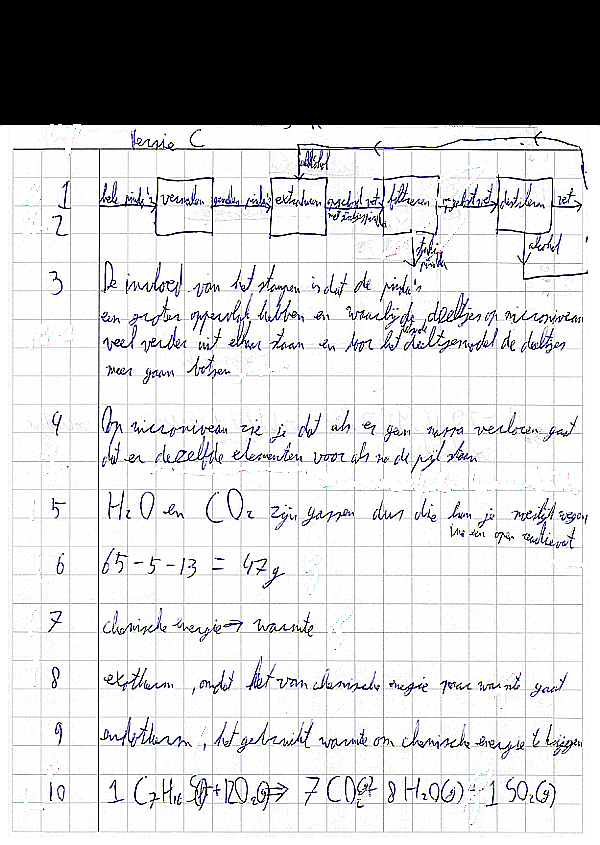 Versie C
alcohol
1 hele pinda's vermalen gemalen pinda's extraheren opgelost vet filtreren opgelost vet destilleren vet
2
alcohol
3 De invloed van het stampen is dat de pinda's
een groter oppervlak hebben en waarbij de deeltjes op microniveau
veel verder uit elkaar staan en door het deeltjesmodel de deeltjes
meer gaan botsen
4 Op microniveau zie je dat als er geen massa verloren gaat
dat er dezelfde elementen voor als na de pijl staan
5 H₂O en CO₂ zijn gassen dus die kun je moeilijk wegen
in een open reactievat
6 65-5-13 = 47g
7 chemische energie → warmte
8 exotherm, omdat het van chemische energie naar warmte gaat
9 endotherm, het gebruikt warmte om chemische energie te krijgen
10 1 C₇H₁₆S + 12O₂(g) → 7 CO₂(g) 8 H₂O(g) + 1 SO₂(g)